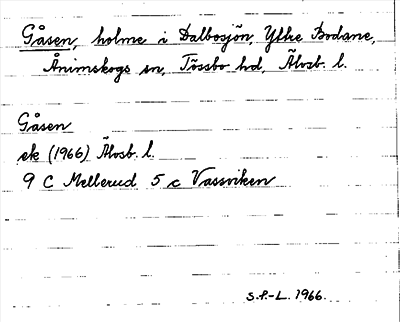 Gåsen, holme i Dalbosjön, Yttre Bodane,
Ånimskogs sn, Tössbo hd, Älvsb. l.
Gåsen
ek (1966) Älvsb. l.
9 C Mellerud 5 c Vassviken
S.P.-L. 1966.